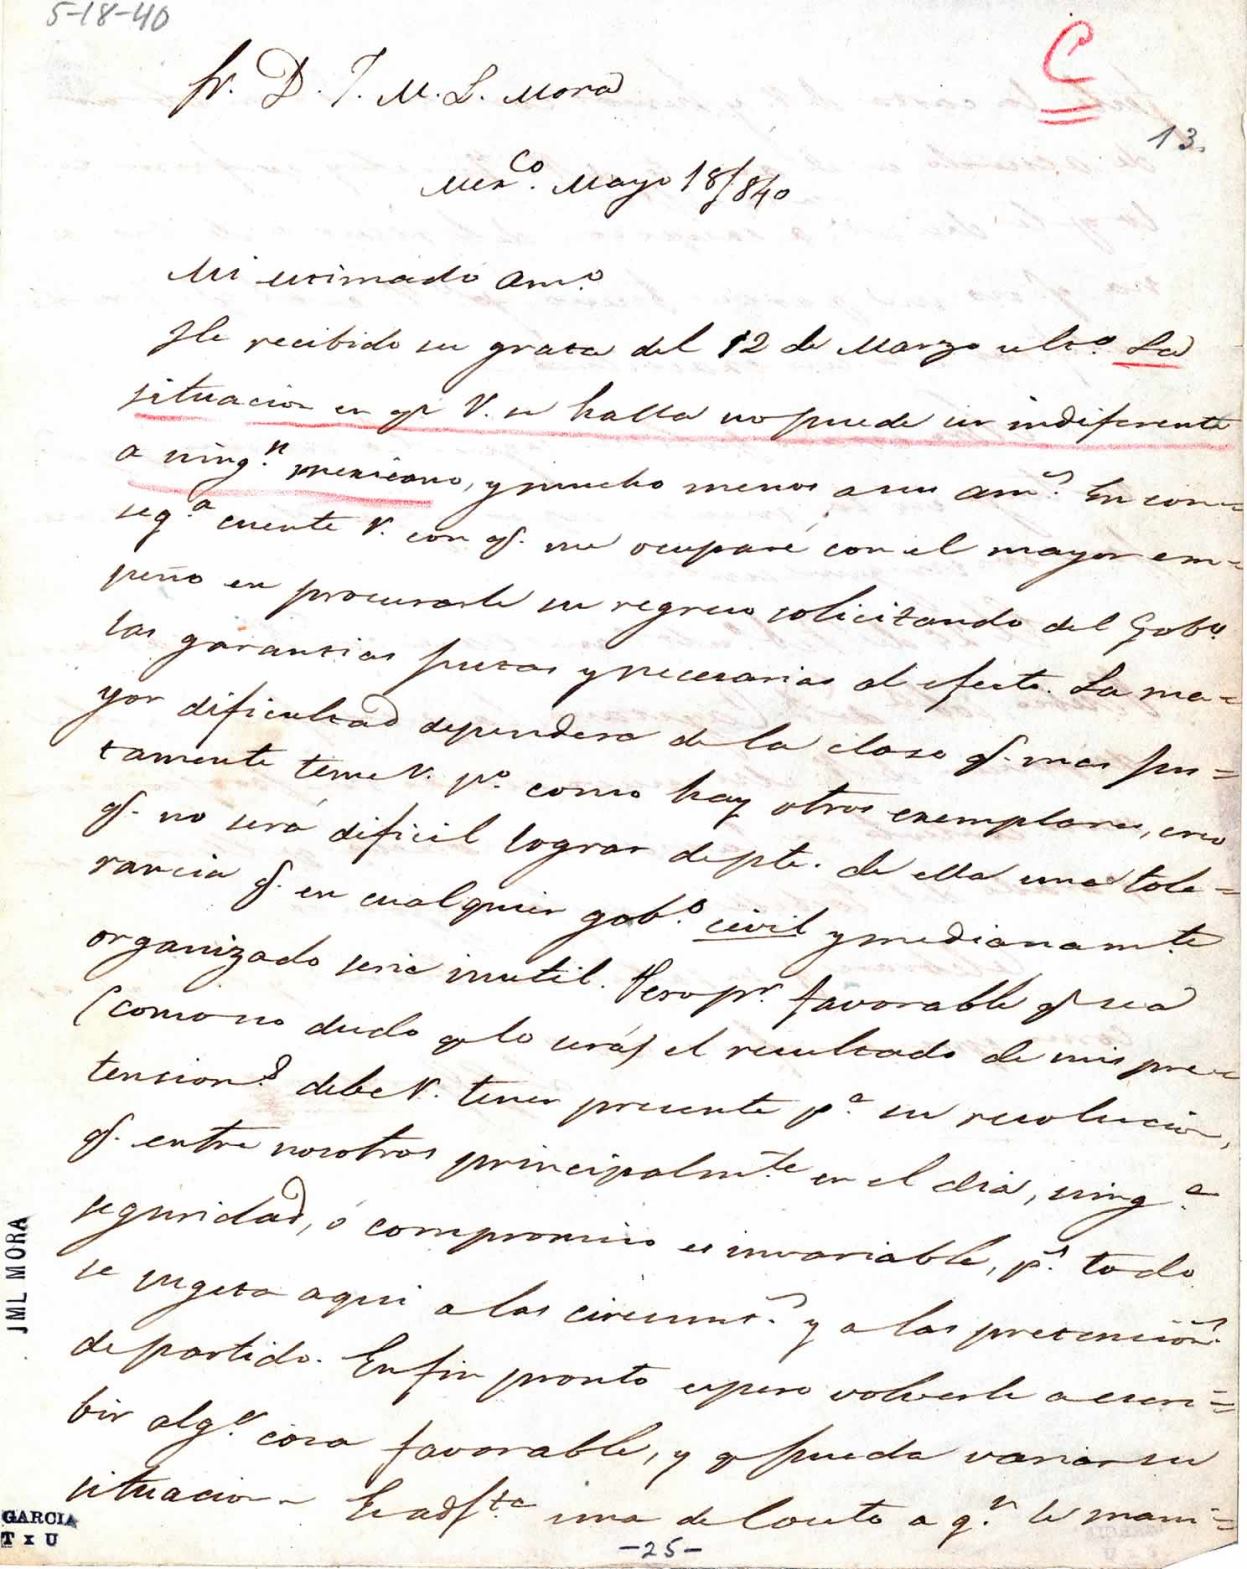 5-18-40
C
13.
Sr. D. J. M. L. Mora
Mexco. Mayo 18/840
Mi estimado amo.
He recibido su grata del 12 de Marzo ulto. La
situacion en qe V. se halla no puede ser indiferente
a ningn. mexicano, y mucho menos a sus ams. En con=
sega. cuente V. con q. me ocuparé con el mayor em=
peño en procurarle su regreso solicitando del Gobo.
las garantias justas y necesarias al efecto. La ma=
yor dificultad dependera de la clase q. mas jus=
tamente teme V. po. como hay otros exemplares, creo
q. no será dificil lograr de pte. de ella una tole=
rancia q. en cualquier gobo. civil y medianamte
organizado seria inutil. Pero pr. favorable q sea
(como no dudo q lo será) el resultado de mis pre=
tensions. debe V. tener presente pa. su resolucion,
q. entre nosotros principalmte en el dia, ninga
seguridad, ó compromiso es invariable, ps. todo
se sugeta aqui a las circunss. y a las pretencions.
de partido. En fin pronto espero volverle a escri=
bir alga. cosa favorable, y q pueda variar su
situacion - La adjta una de Couto a qn. le mani=
-25-
JML MORA
GARCIA
T x U